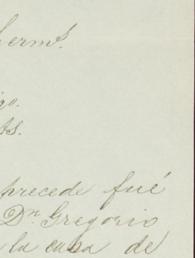 herm.ˢ
go.
ts.
precede fué
Dⁿ Gregorio
la casa de